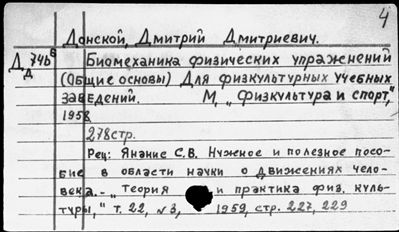 4
Донской, Дмитрий Дмитриевич.
Биомеханика физических упражнений
(Общие основы) Для физкультурных учебных
заведений. М, „Физкультура и спорт,"
1958
278стр.
Рец: Янание С.В. Нужное и полезное посо-
бие в области науки о движениях чело-
века. - „Теория и практика физ. куль-
туры," т. 22, №3, 1959, стр. 227, 229